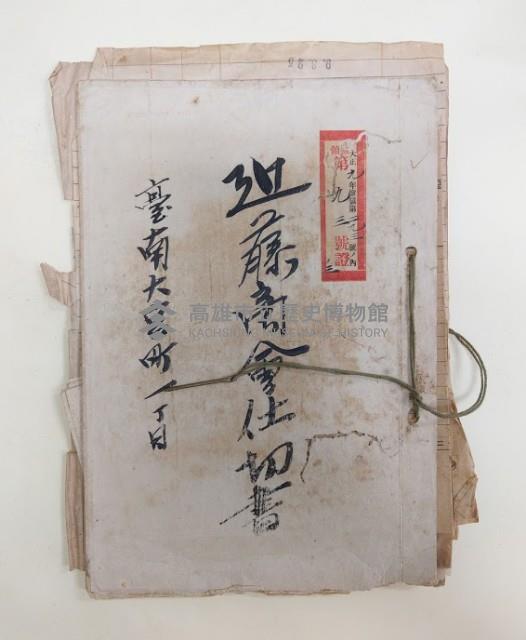 8.3.26
大正九年證據第一九三號ノ內
領第九三號證
三
近藤商會仕切書
臺南大宮町一丁目
高雄市立歷史博物館
KAOHSIUNG MUSEUM OF HISTORY